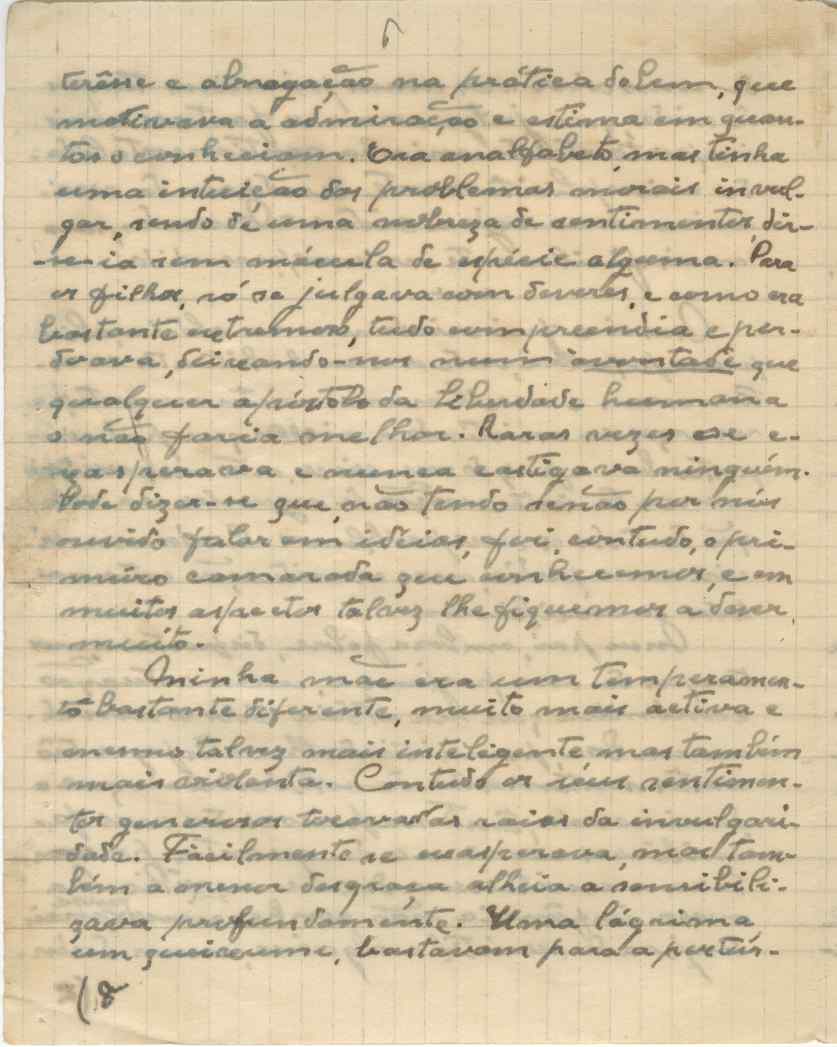 6
terêsse e abnegação na prática do bem, que
motivava a admiração e estima em quan-
tos o conheciam. Era analfabeto, mas tinha
uma intuição dos problemas morais invul-
gar, sendo de uma nobreza de sentimentos, dir-
-se-ia sem mácula de espécie alguma. Para
os filhos, só se julgava com deveres, e como era
bastante extremoso, tudo compreendia e per-
doava, deixando-nos num àvontade que
qualquer apóstolo da liberdade humana
o não faria melhor. Raras vezes se e-
xasperava e nunca castigava ninguém.
Pode dizer-se que, não tendo senão por nós
ouvido falar em idéias, foi, contudo, o pri-
meiro camarada que conhecemos, e em
muitos aspectos talvez lhe fiquemos a dever
muito.
Minha mãe era um temperamen-
to bastante diferente, muito mais activa e
mesmo talvez mais inteligente mas também
mais violenta. Contudo os seus sentimen-
tos generosos tocavam as raias da invulgari-
dade. Fàcilmente se exasperava, mas tam-
bém a menor desgraça alheia a sensibili-
zava profundamente. Uma lágrima,
um queixume, bastavam para a pertur-